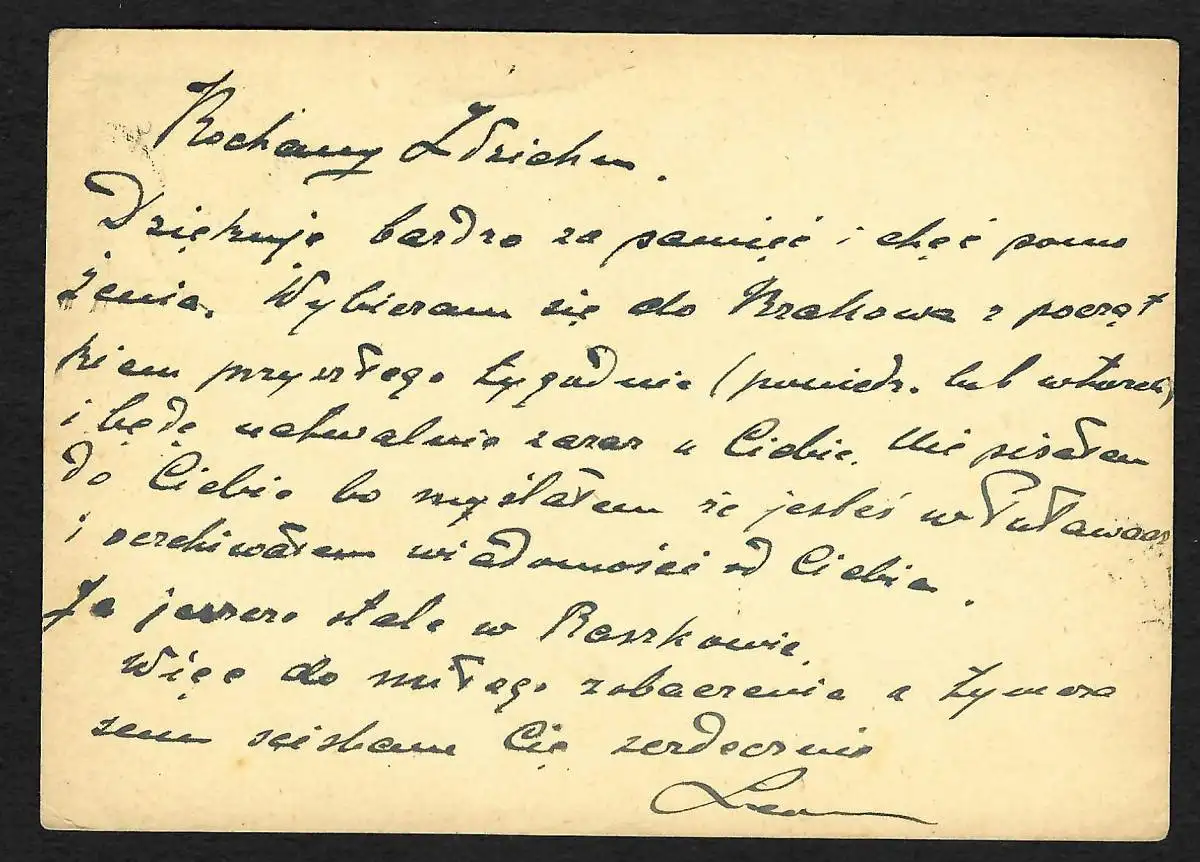 Kochany Zdzichu.
Dziękuję bardzo za pamięć i chęć pomo
żenia. Wybieram się do Krakowa z począt
kiem przyszłego tygodnia (poniedz. lub wtorek)
i będę natwalnie zaraz u Ciebie. Nie pisałem
do Ciebie bo myślałem że jesteś w Puławach
i oczekiwałem wiadomości od Ciebie.
Ja jeszcze stale w Raszkowie.
Więc do miłego zobaczenia a tymcza
sem ściskam Cię serdecznie
Leon